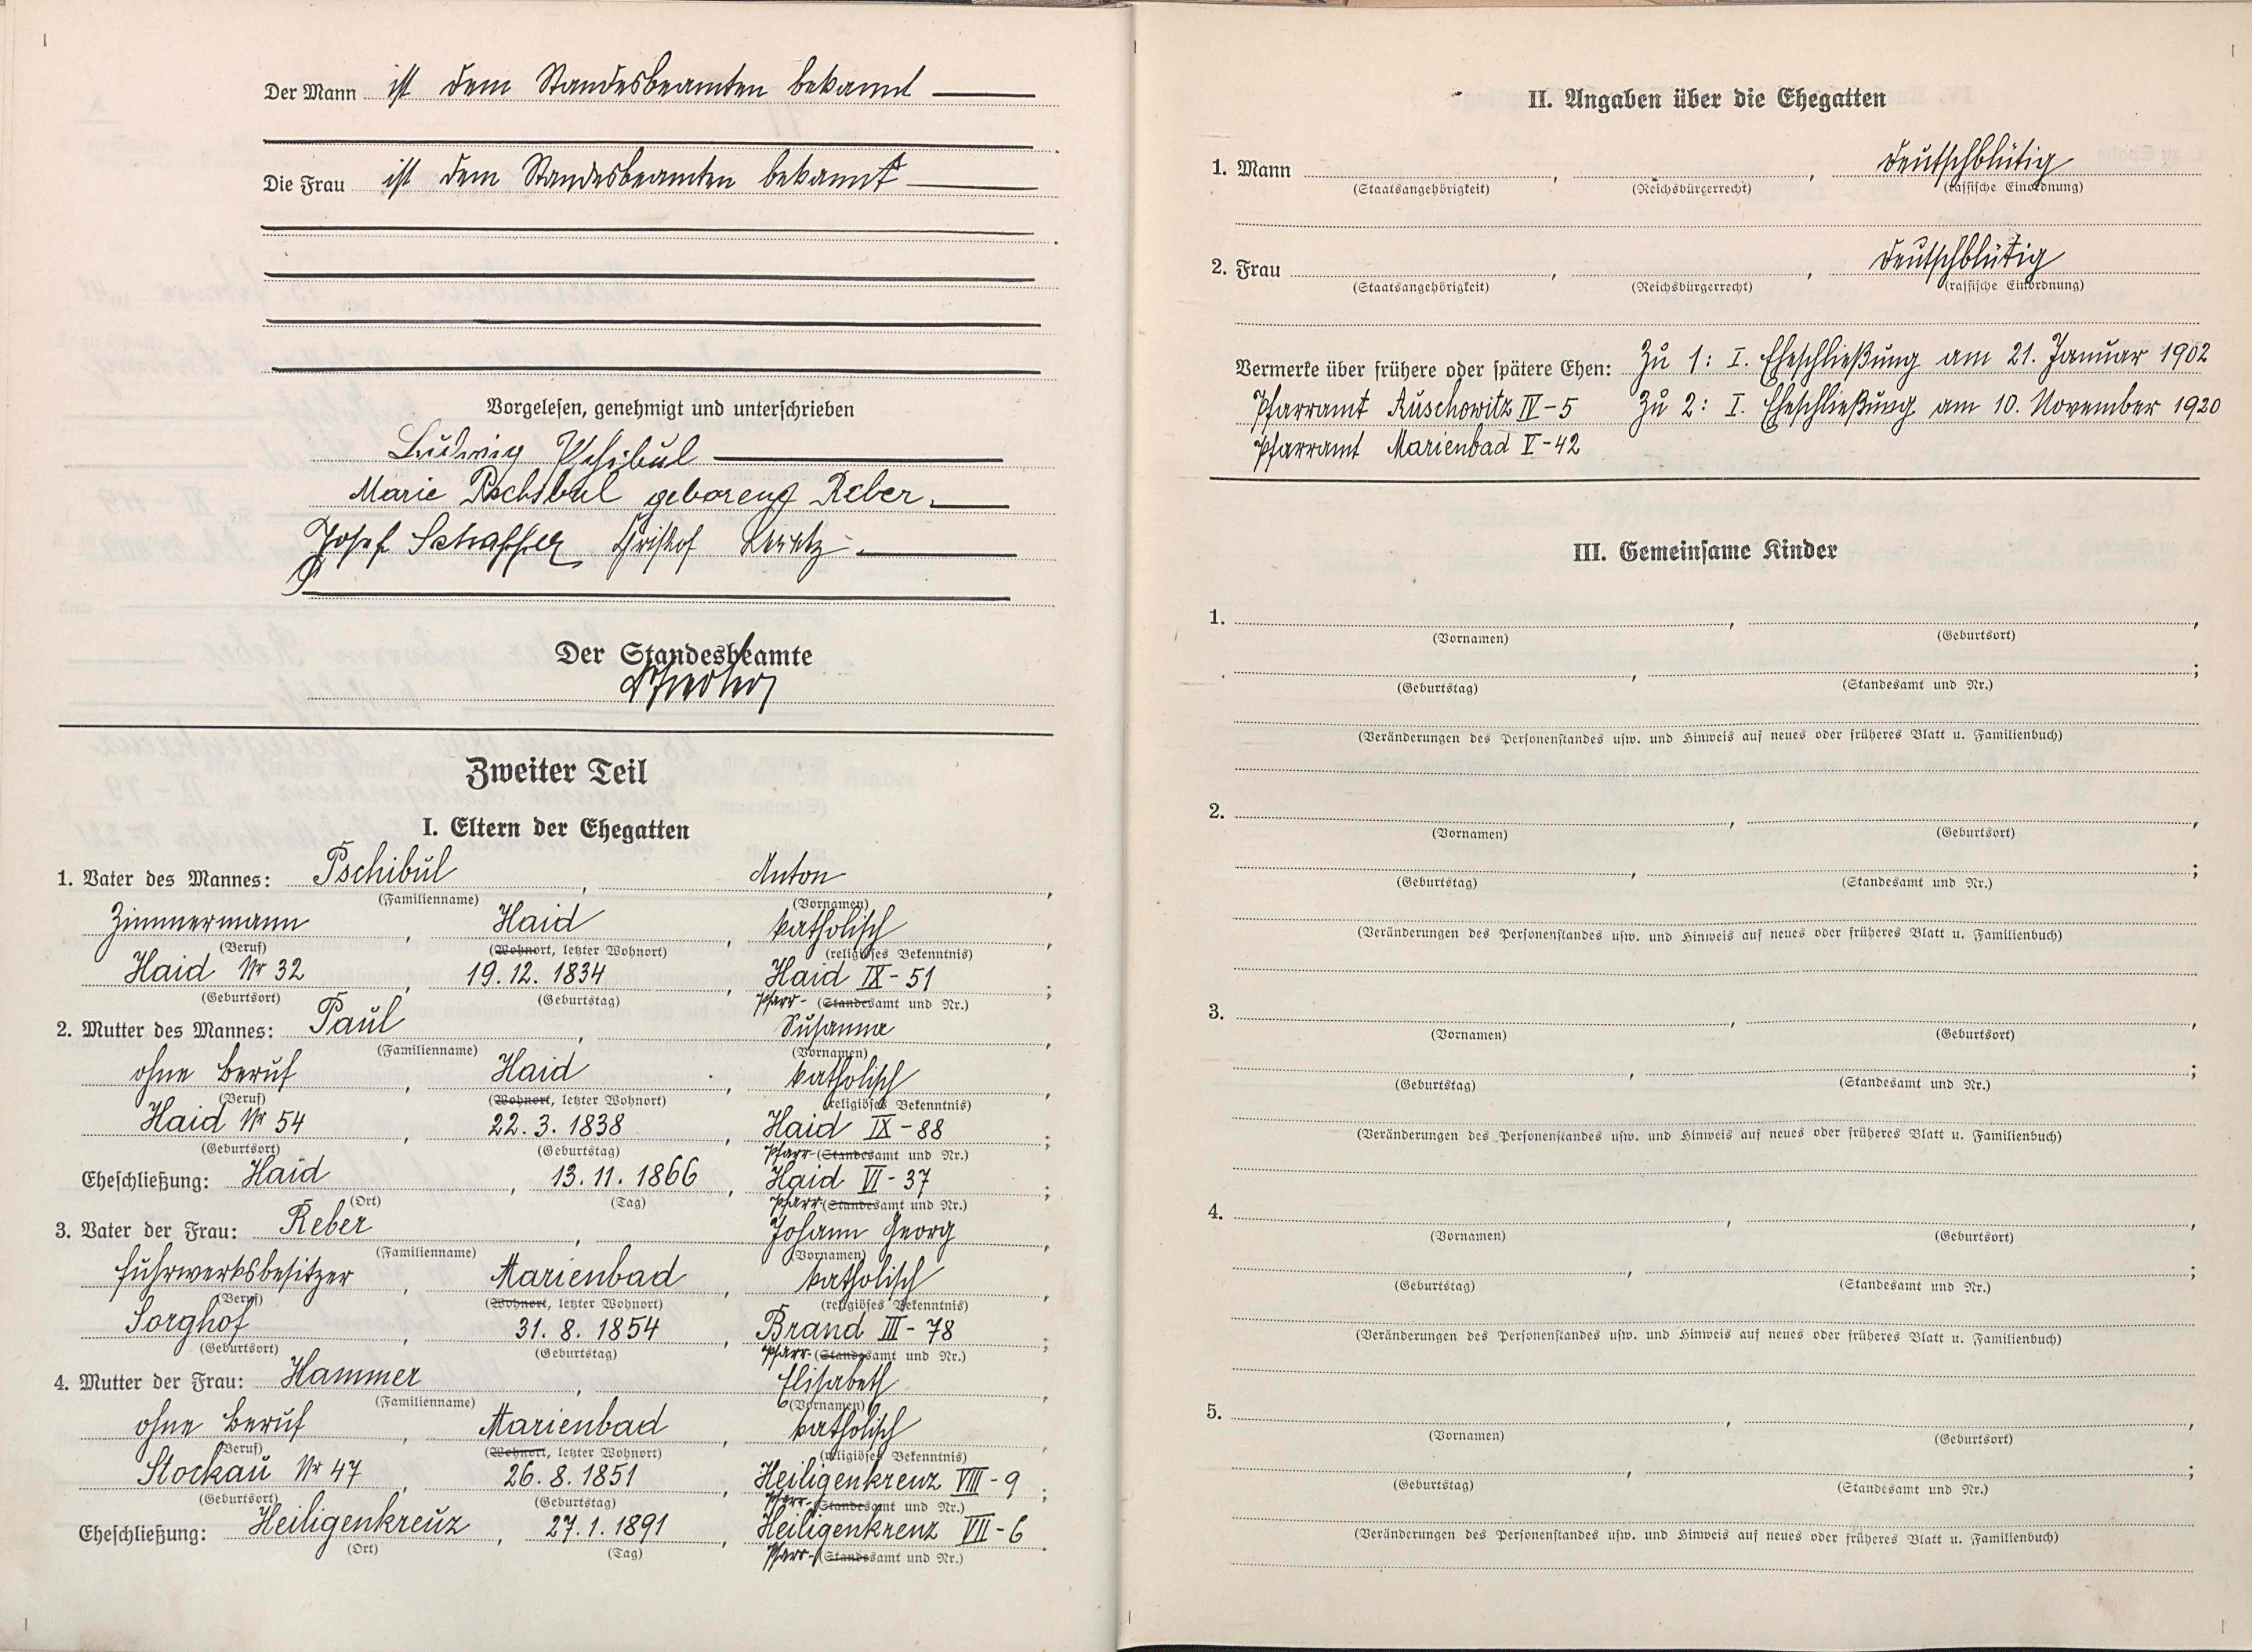 Der Mann ist dem Standesbeamten bekannt
Die Frau ist dem Standesbeamten bekannt
Vorgelesen, genehmigt und unterschrieben
Ludwig Pschibul
Marie Pschibul geborene Reber.
Josef Schaffer Christof
Der Standesbeamte
Zweiter Teil
I. Eltern der Ehegatten
1. Vater des Mannes: Pschibul, Anton,
(Familienname) (Vornamen)
Zimmermann, Haid, katholisch,
(Beruf) (Wohnort, letzter Wohnort) (religiöses Bekenntnis)
Haid Nr 32, 19.12.1834, Haid IX-51;
(Geburtsort) (Geburtstag) Pfarr- (Standesamt und Nr.)
2. Mutter des Mannes: Paul, Susanna,
(Familienname) (Vornamen)
ohne Beruf, Haid, katholisch,
(Beruf) (Wohnort, letzter Wohnort) (religiöses Bekenntnis)
Haid Nr 54, 22.3.1838, Haid IX-88;
(Geburtsort) (Geburtstag) Pfarr- (Standesamt und Nr.)
Eheschließung: Haid, 13.11.1866, Haid VI-37;
(Ort) (Tag) Pfarr- (Standesamt und Nr.)
3. Vater der Frau: Reber, Johann Georg,
(Familienname) (Vornamen)
Fuhrwerksbesitzer, Marienbad, katholisch,
(Beruf) (Wohnort, letzter Wohnort) (religiöses Bekenntnis)
Sorghof, 31.8.1854, Brand III-78;
(Geburtsort) (Geburtstag) Pfarr- (Standesamt und Nr.)
4. Mutter der Frau: Hammer, Elisabeth,
(Familienname) (Vornamen)
ohne Beruf, Marienbad, katholisch,
(Beruf) (Wohnort, letzter Wohnort) (religiöses Bekenntnis)
Stockau Nr 47, 26.8.1851, Heiligenkreuz VIII-9;
(Geburtsort) (Geburtstag) Pfarr- (Standesamt und Nr.)
Eheschließung: Heiligenkreuz, 27.1.1891, Heiligenkreuz VII-6.
(Ort) (Tag) Pfarr- (Standesamt und Nr.)
II. Angaben über die Ehegatten
1. Mann , , deutschblütig
(Staatsangehörigkeit) (Reichsbürgerrecht) (rassische Einordnung)
2. Frau , , deutschblütig
(Staatsangehörigkeit) (Reichsbürgerrecht) (rassische Einordnung)
Vermerke über frühere oder spätere Ehen: Zu 1: I. Eheschließung am 21. Januar 1902
Pfarramt Auschowitz IV-5 Zu 2: I. Eheschließung am 10. November 1920
Pfarramt Marienbad V-42
III. Gemeinsame Kinder
1. , ,
(Vornamen) (Geburtsort)
, ;
(Geburtstag) (Standesamt und Nr.)
(Veränderungen des Personenstandes usw. und Hinweis auf neues oder früheres Blatt u. Familienbuch)
2. , ,
(Vornamen) (Geburtsort)
, ;
(Geburtstag) (Standesamt und Nr.)
(Veränderungen des Personenstandes usw. und Hinweis auf neues oder früheres Blatt u. Familienbuch)
3. , ,
(Vornamen) (Geburtsort)
, ;
(Geburtstag) (Standesamt und Nr.)
(Veränderungen des Personenstandes usw. und Hinweis auf neues oder früheres Blatt u. Familienbuch)
4. , ,
(Vornamen) (Geburtsort)
, ;
(Geburtstag) (Standesamt und Nr.)
(Veränderungen des Personenstandes usw. und Hinweis auf neues oder früheres Blatt u. Familienbuch)
5. , ,
(Vornamen) (Geburtsort)
, ;
(Geburtstag) (Standesamt und Nr.)
(Veränderungen des Personenstandes usw. und Hinweis auf neues oder früheres Blatt u. Familienbuch)